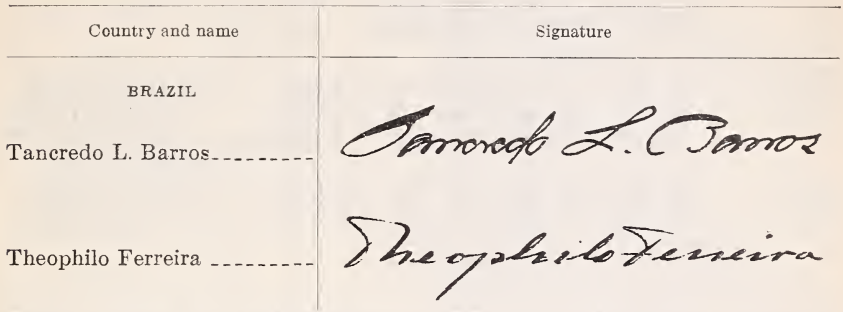 Country and name Signature
BRAZIL
Tancredo L. Barros Tancredo L. Barros
Theophilo Ferreira Theophilo Ferreira